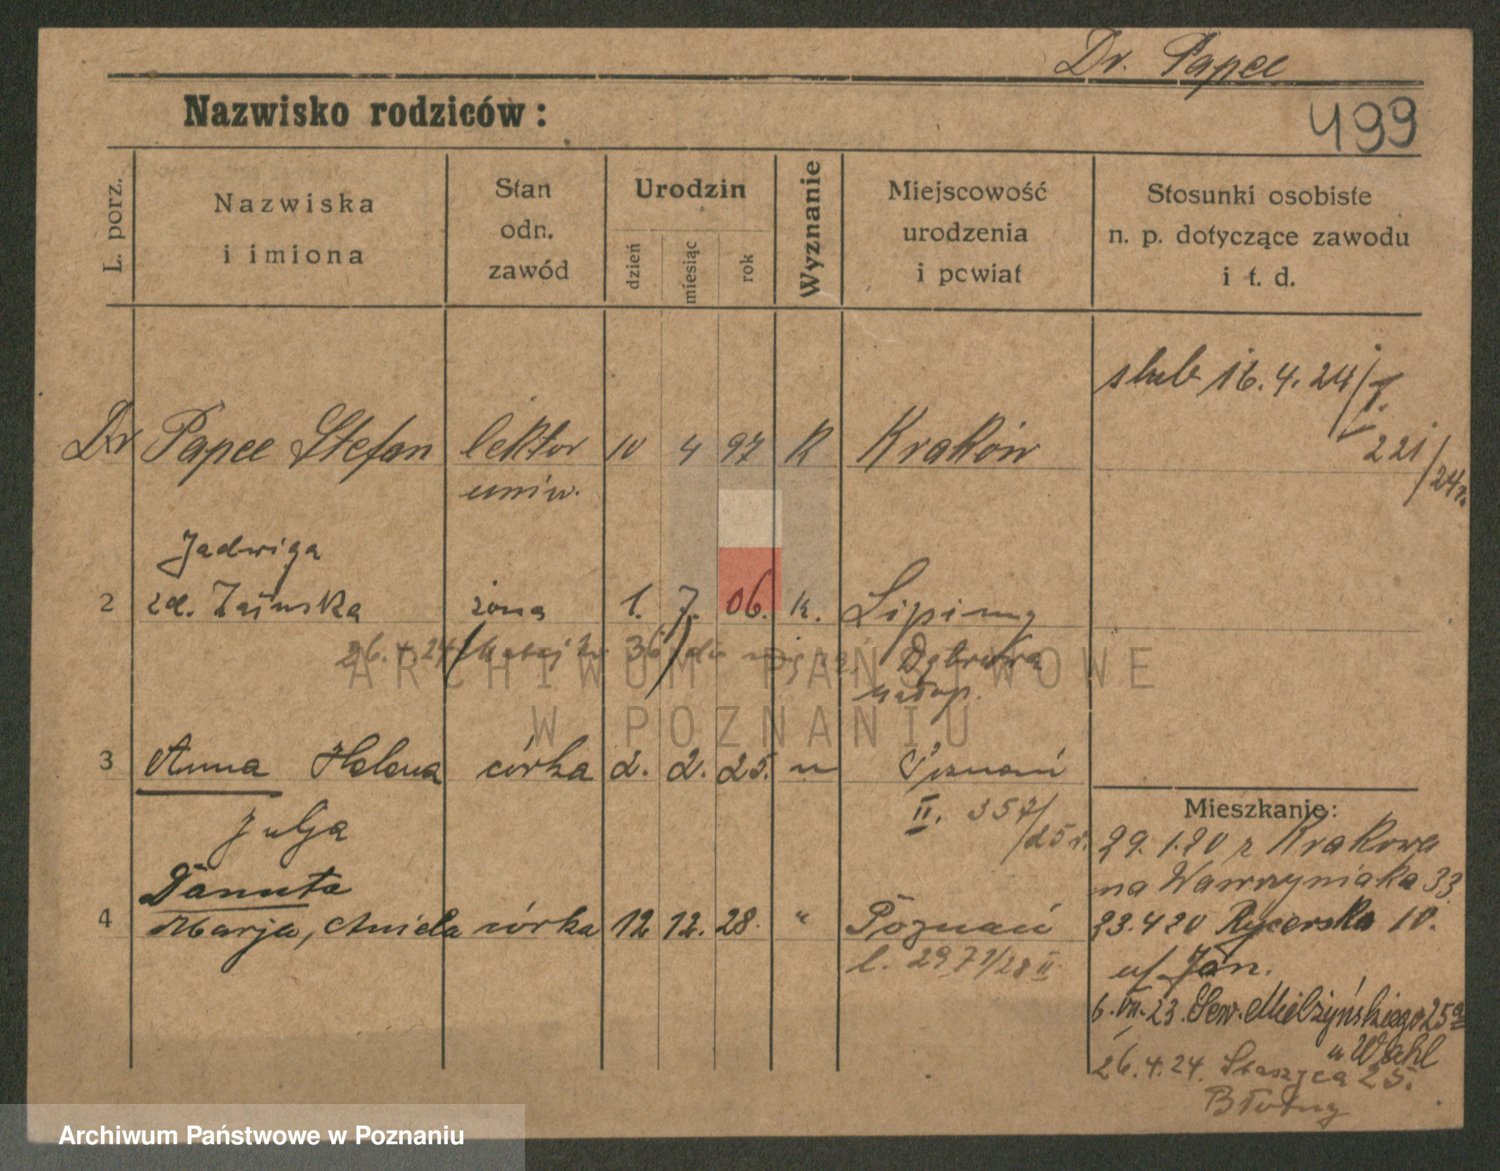 Dr. Papee
Nazwisko rodziców:
499
L. porz.
Nazwiska
i imiona
Stan
odn.
zawód
Urodzin
dzień
miesiąc
rok
Wyznanie
Miejscowość
urodzenia
i powiat
Stosunki osobiste
n. p. dotyczące zawodu
i t. d.
ślub 16.4.24/I.
221/24r.
Dr Papee Stefan lektor 10 4 97 K Kraków
uniw.
Jadwiga
2 zd. żona 1. 7. 06. k. Lipiny
26.4.24 36 Dąbrowa
3 Anna Helena córka 2. 2. 25. " Poznań
Julja
II. 357/25 r.
Danuta
4 Marja, Aniela córka 12 12. 28. " Poznań
l. 2971/28 II
Mieszkanie:
29.1.20 z Krakowa
na Wawrzyniaka 33
23.4 20 Rycerska 10.
u/ Jan.
6.VII.23. Sew. Mielżyńskiego 25a
u Wahl
26.4.24. Staszyca 25.
Błotny
ARCHIWUM PAŃSTWOWE
W POZNANIU
Archiwum Państwowe w Poznaniu